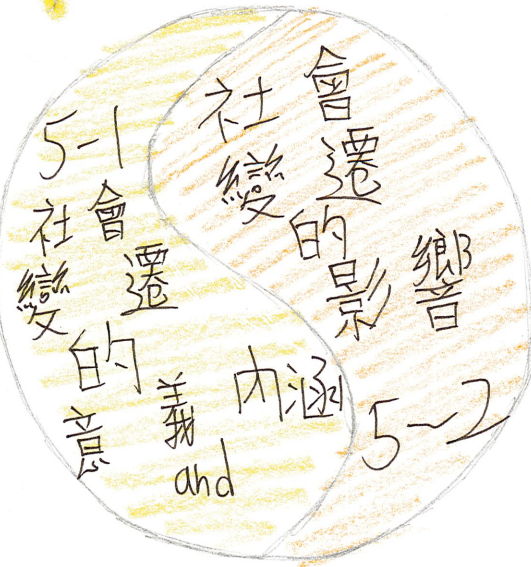 5-1
社會
變遷
的
意義
and
內涵
社會
變遷
的
影響
5~2